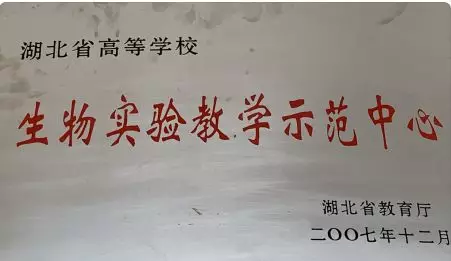 湖北省高等学校
生物实验教学示范中心
湖北省教育厅
二〇〇七年十二月